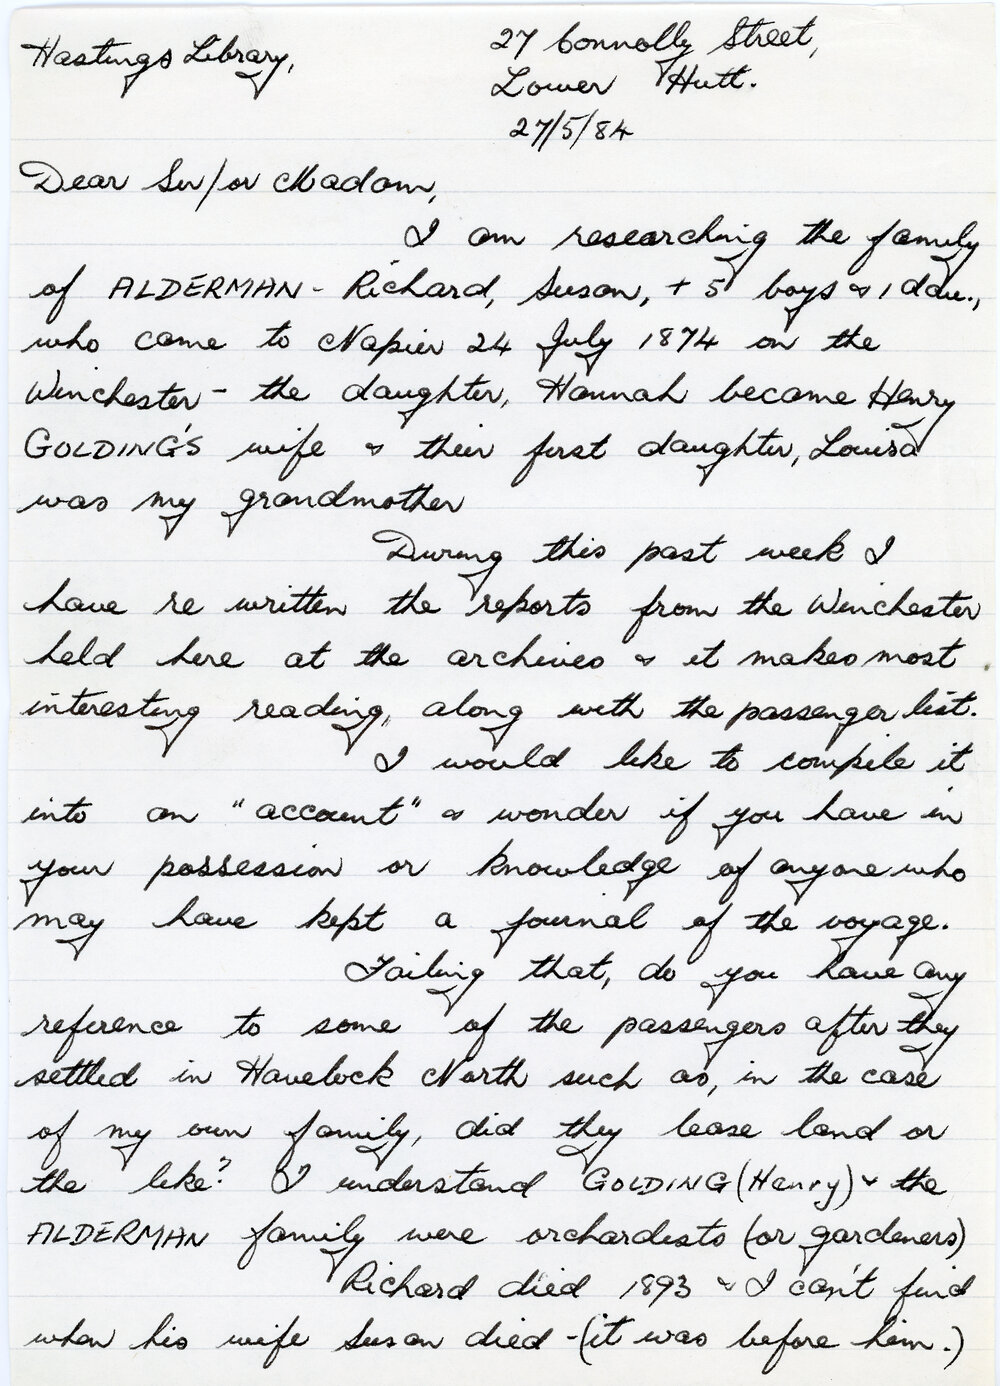 Hastings Library,
27 Connolly Street,
Lower Hutt.
27/5/84
Dear Sir/or Madam,
I am researching the family
of ALDERMAN - Richard, Susan, + 5 boys & 1 dau.,
who came to Napier 24 July 1874 on the
Winchester - the daughter, Hannah became Henry
GOLDING'S wife & their first daughter, Louisa
was my grandmother
During this past week I
have re written the reports from the Winchester
held here at the archives & it makes most
interesting reading, along with the passenger list.
I would like to compile it
into an "account" & wonder if you have in
your possession or knowledge of anyone who
may have kept a journal of the voyage.
Failing that, do you have any
reference to some of the passengers after they
settled in Havelock North such as, in the case
of my own family, did they lease land or
the like? I understand GOLDING (Henry) & the
ALDERMAN family were orchardists (or gardeners)
Richard died 1893 & I can't find
when his wife Susan died - (it was before him.)